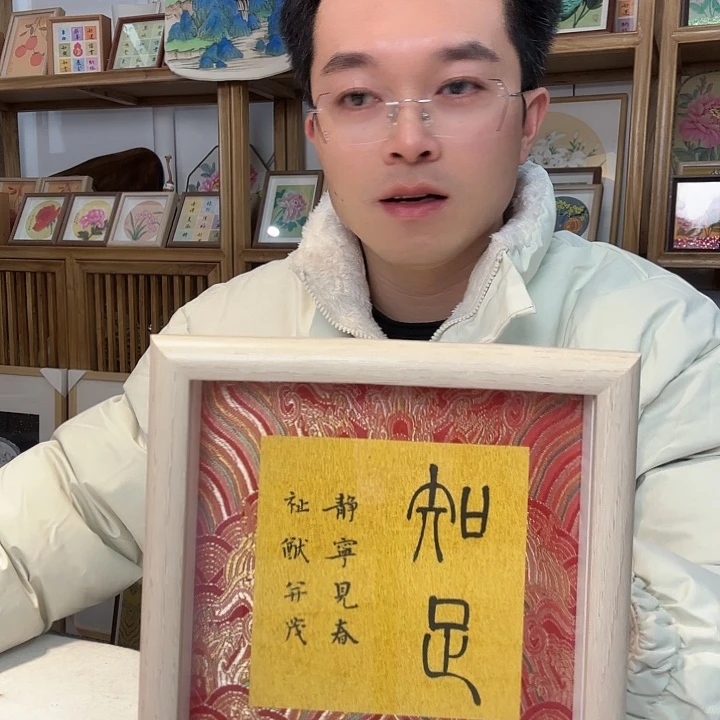 知足
静寧見春
祉猷并茂